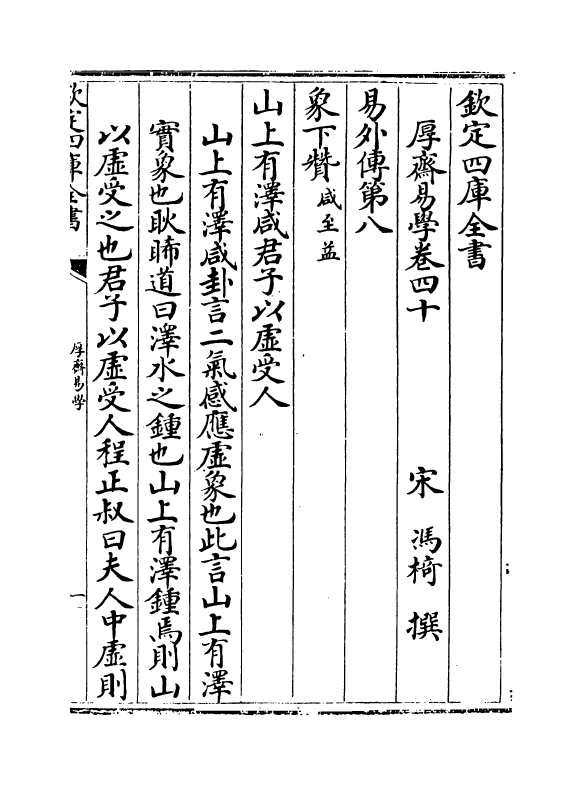 欽定四庫全書
厚齋易學卷四十
宋 馮椅 撰
易外傳第八
象下贊咸至益
山上有澤咸君子以虛受人
山上有澤咸卦言二氣感應虛象也此言山上有澤
實象也耿睎道曰澤水之鍾也山上有澤鍾焉則山
以虛受之也君子以虛受人程正叔曰夫人中虛則
欽定四庫全書
厚齋易學
一